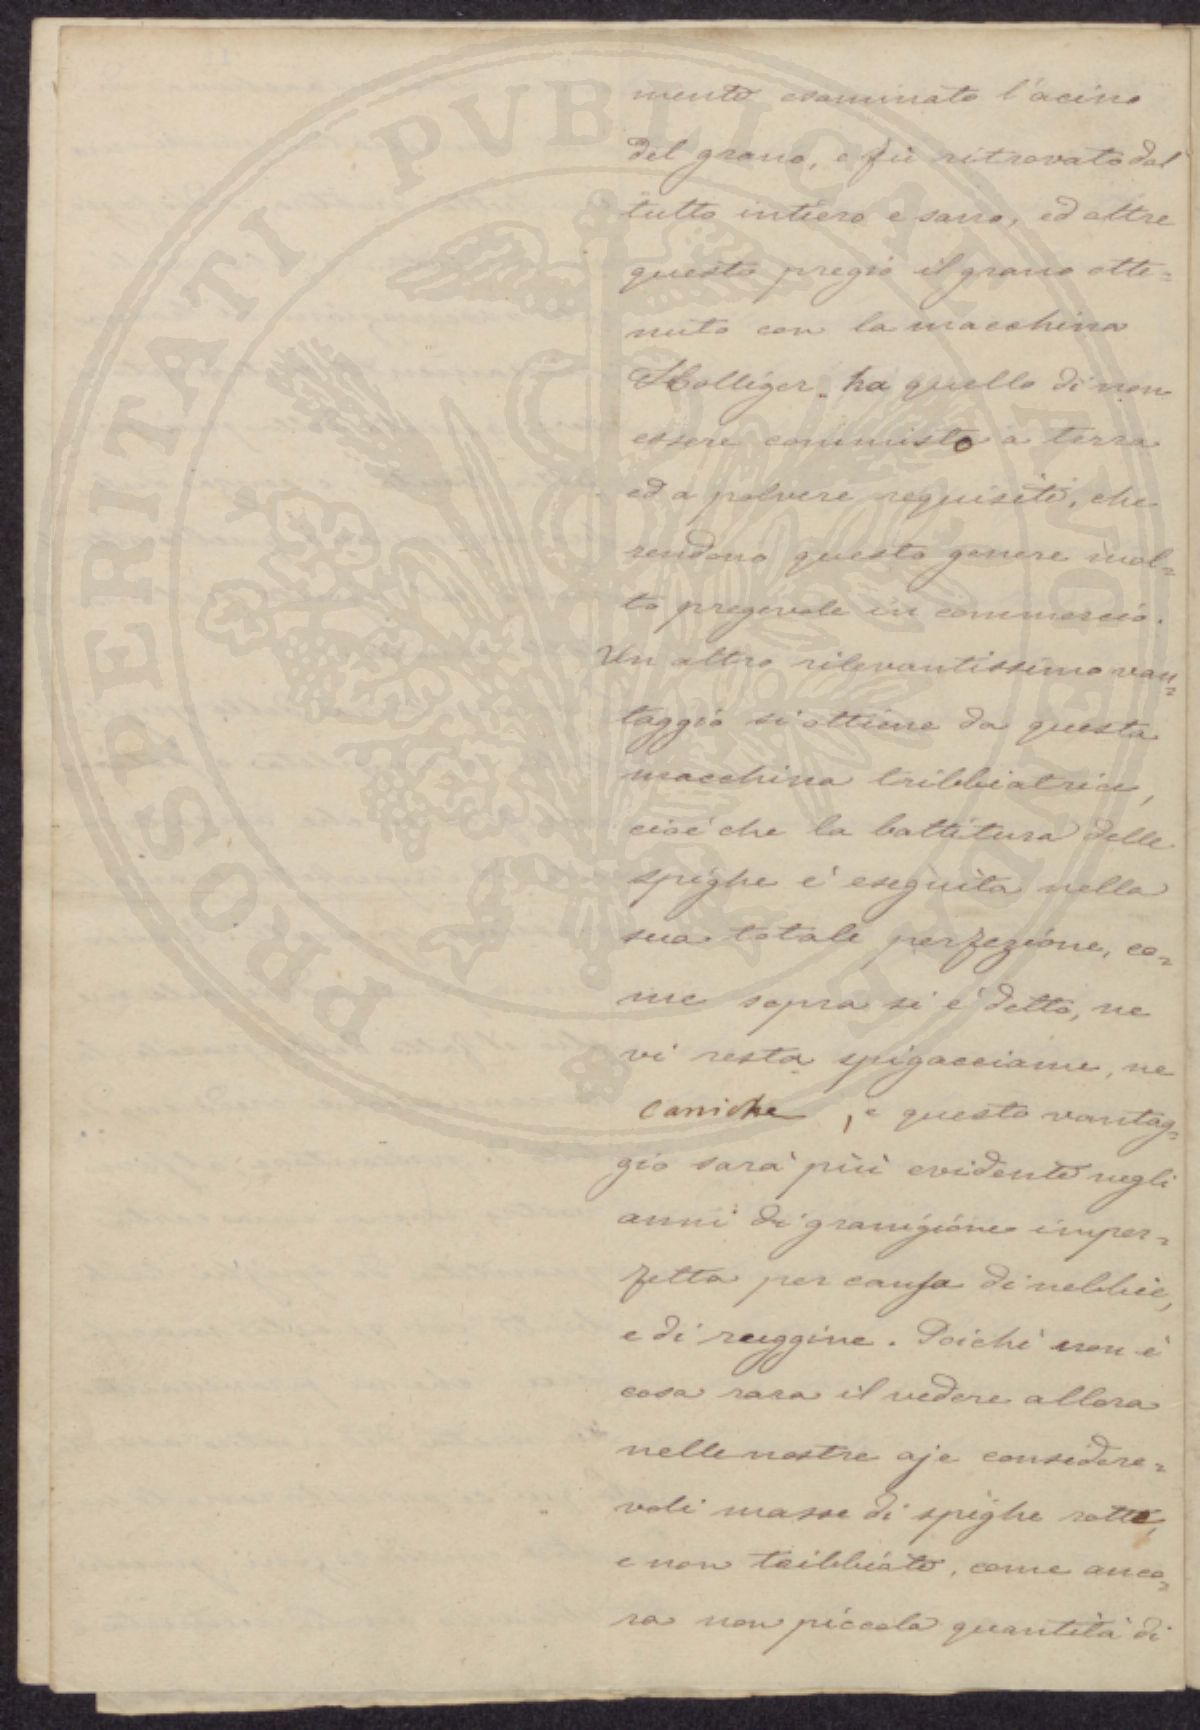 mente esaminato l'acino
del grano, e fù ritrovato del
tutto intiero e sano, ed oltre
questo pregio il grano otte=
nuto con la macchina
Holliger ha quello di non
essere commisto a terra
ed a polvere requisiti, che
rendono questo genere mol=
to pregevole in commercio.
Un altro rilevantissimo van=
taggio si ottiene da questa
macchina tribbiatrice,
cioè che la battitura delle
spighe è eseguita nella
sua totale perfezione, co=
me sopra si è detto, ne
vi resta spigacciame, ne
Caniche, e questo vantag=
gio sarà più evidente negli
anni di granigione imper=
fetta per causa di nebbie,
e di ruggine. Poichè non è
cosa rara il vedere allora
nelle nostre aje considere=
voli masse di spighe rotte,
e non tribbiate, come anco=
ra non piccola quantità di
PROSPERITATI PVBLICAE AVGENDAE